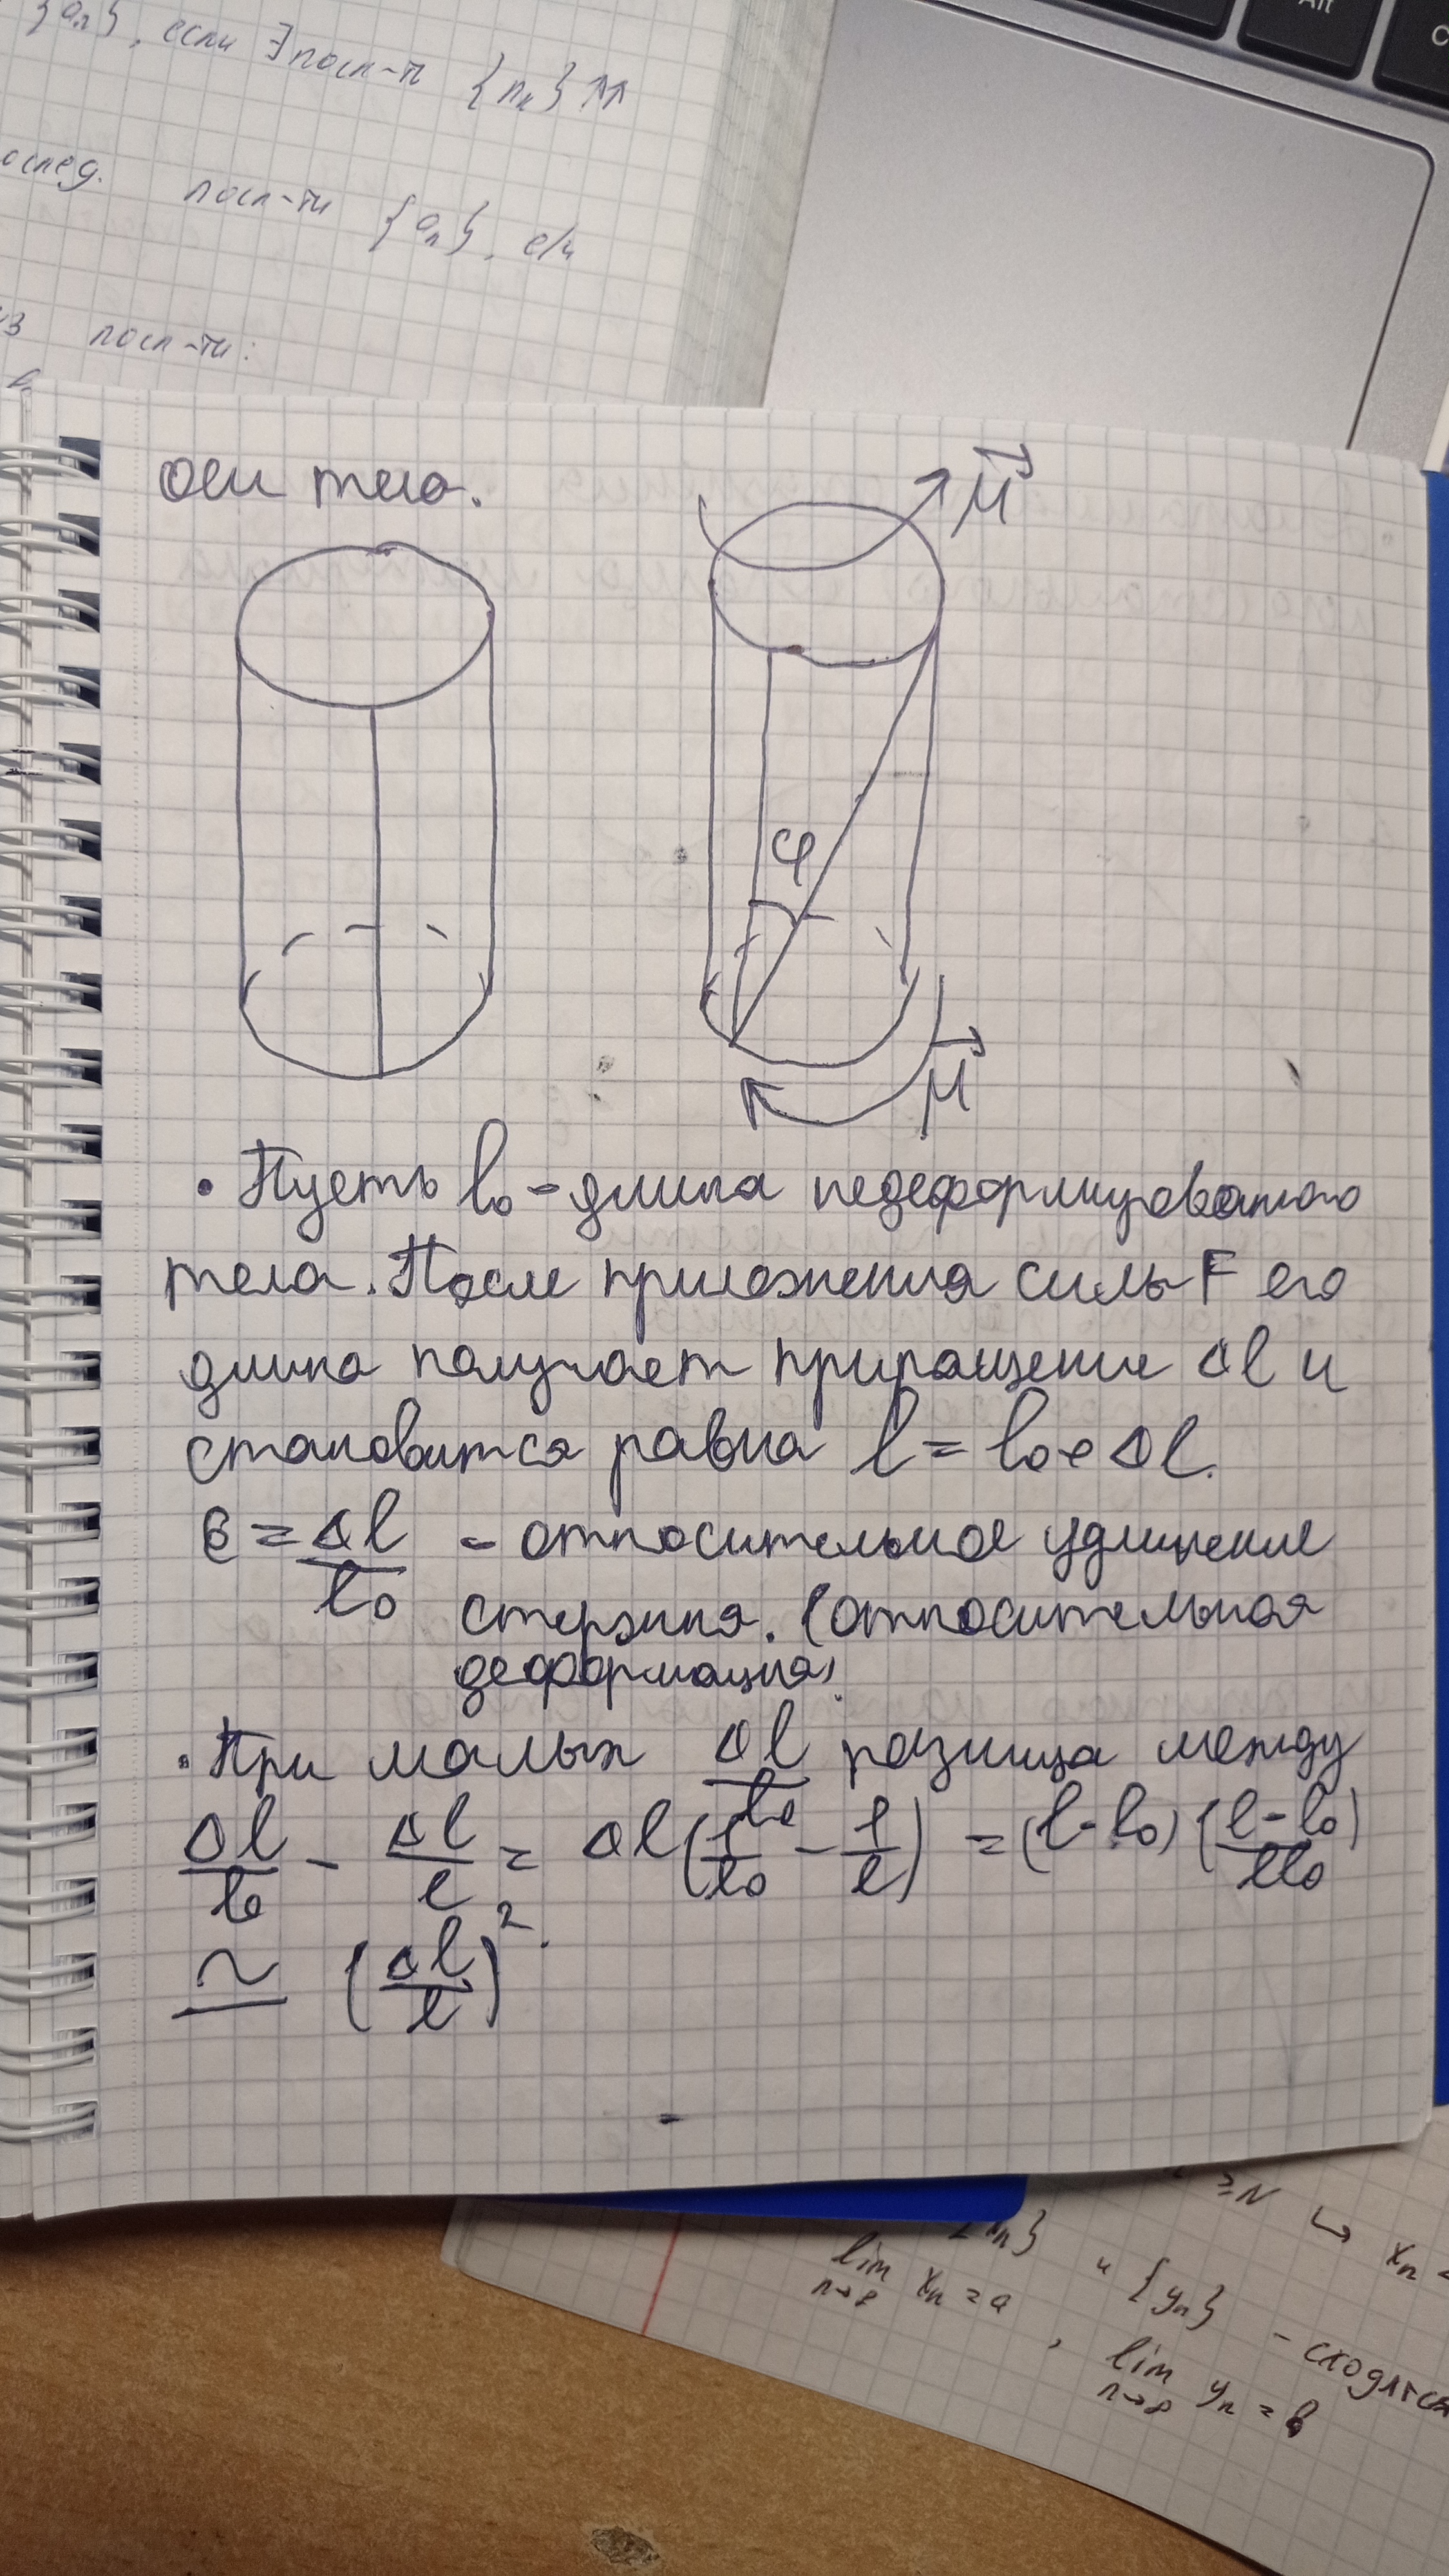 {aₙ}, если ∃ посл-ть {nₖ}↑↑
послед. посл-ти {aₙ}, е/и
из посл-ти:
оси тела.
M⃗
φ
M⃗
• Пусть l₀ - длина недеформированого
тела. После приложения силы F его
длина получает приращение Δl и
становится равна l = l₀ + Δl.
ε = Δl/l₀ - относительное удлинение
стержня. (относительная
деформация).
• При малых Δl/l₀ разница между
Δl/l₀ - Δl/l = Δl(1/l₀ - 1/l) = (l - l₀)(l - l₀/ll₀)
≃ (Δl/l)².
≥N ↪ xₙ
xₙ} и {yₙ} - сходятся
lim n→∞ xₙ = a, lim n→∞ yₙ = b
Alt